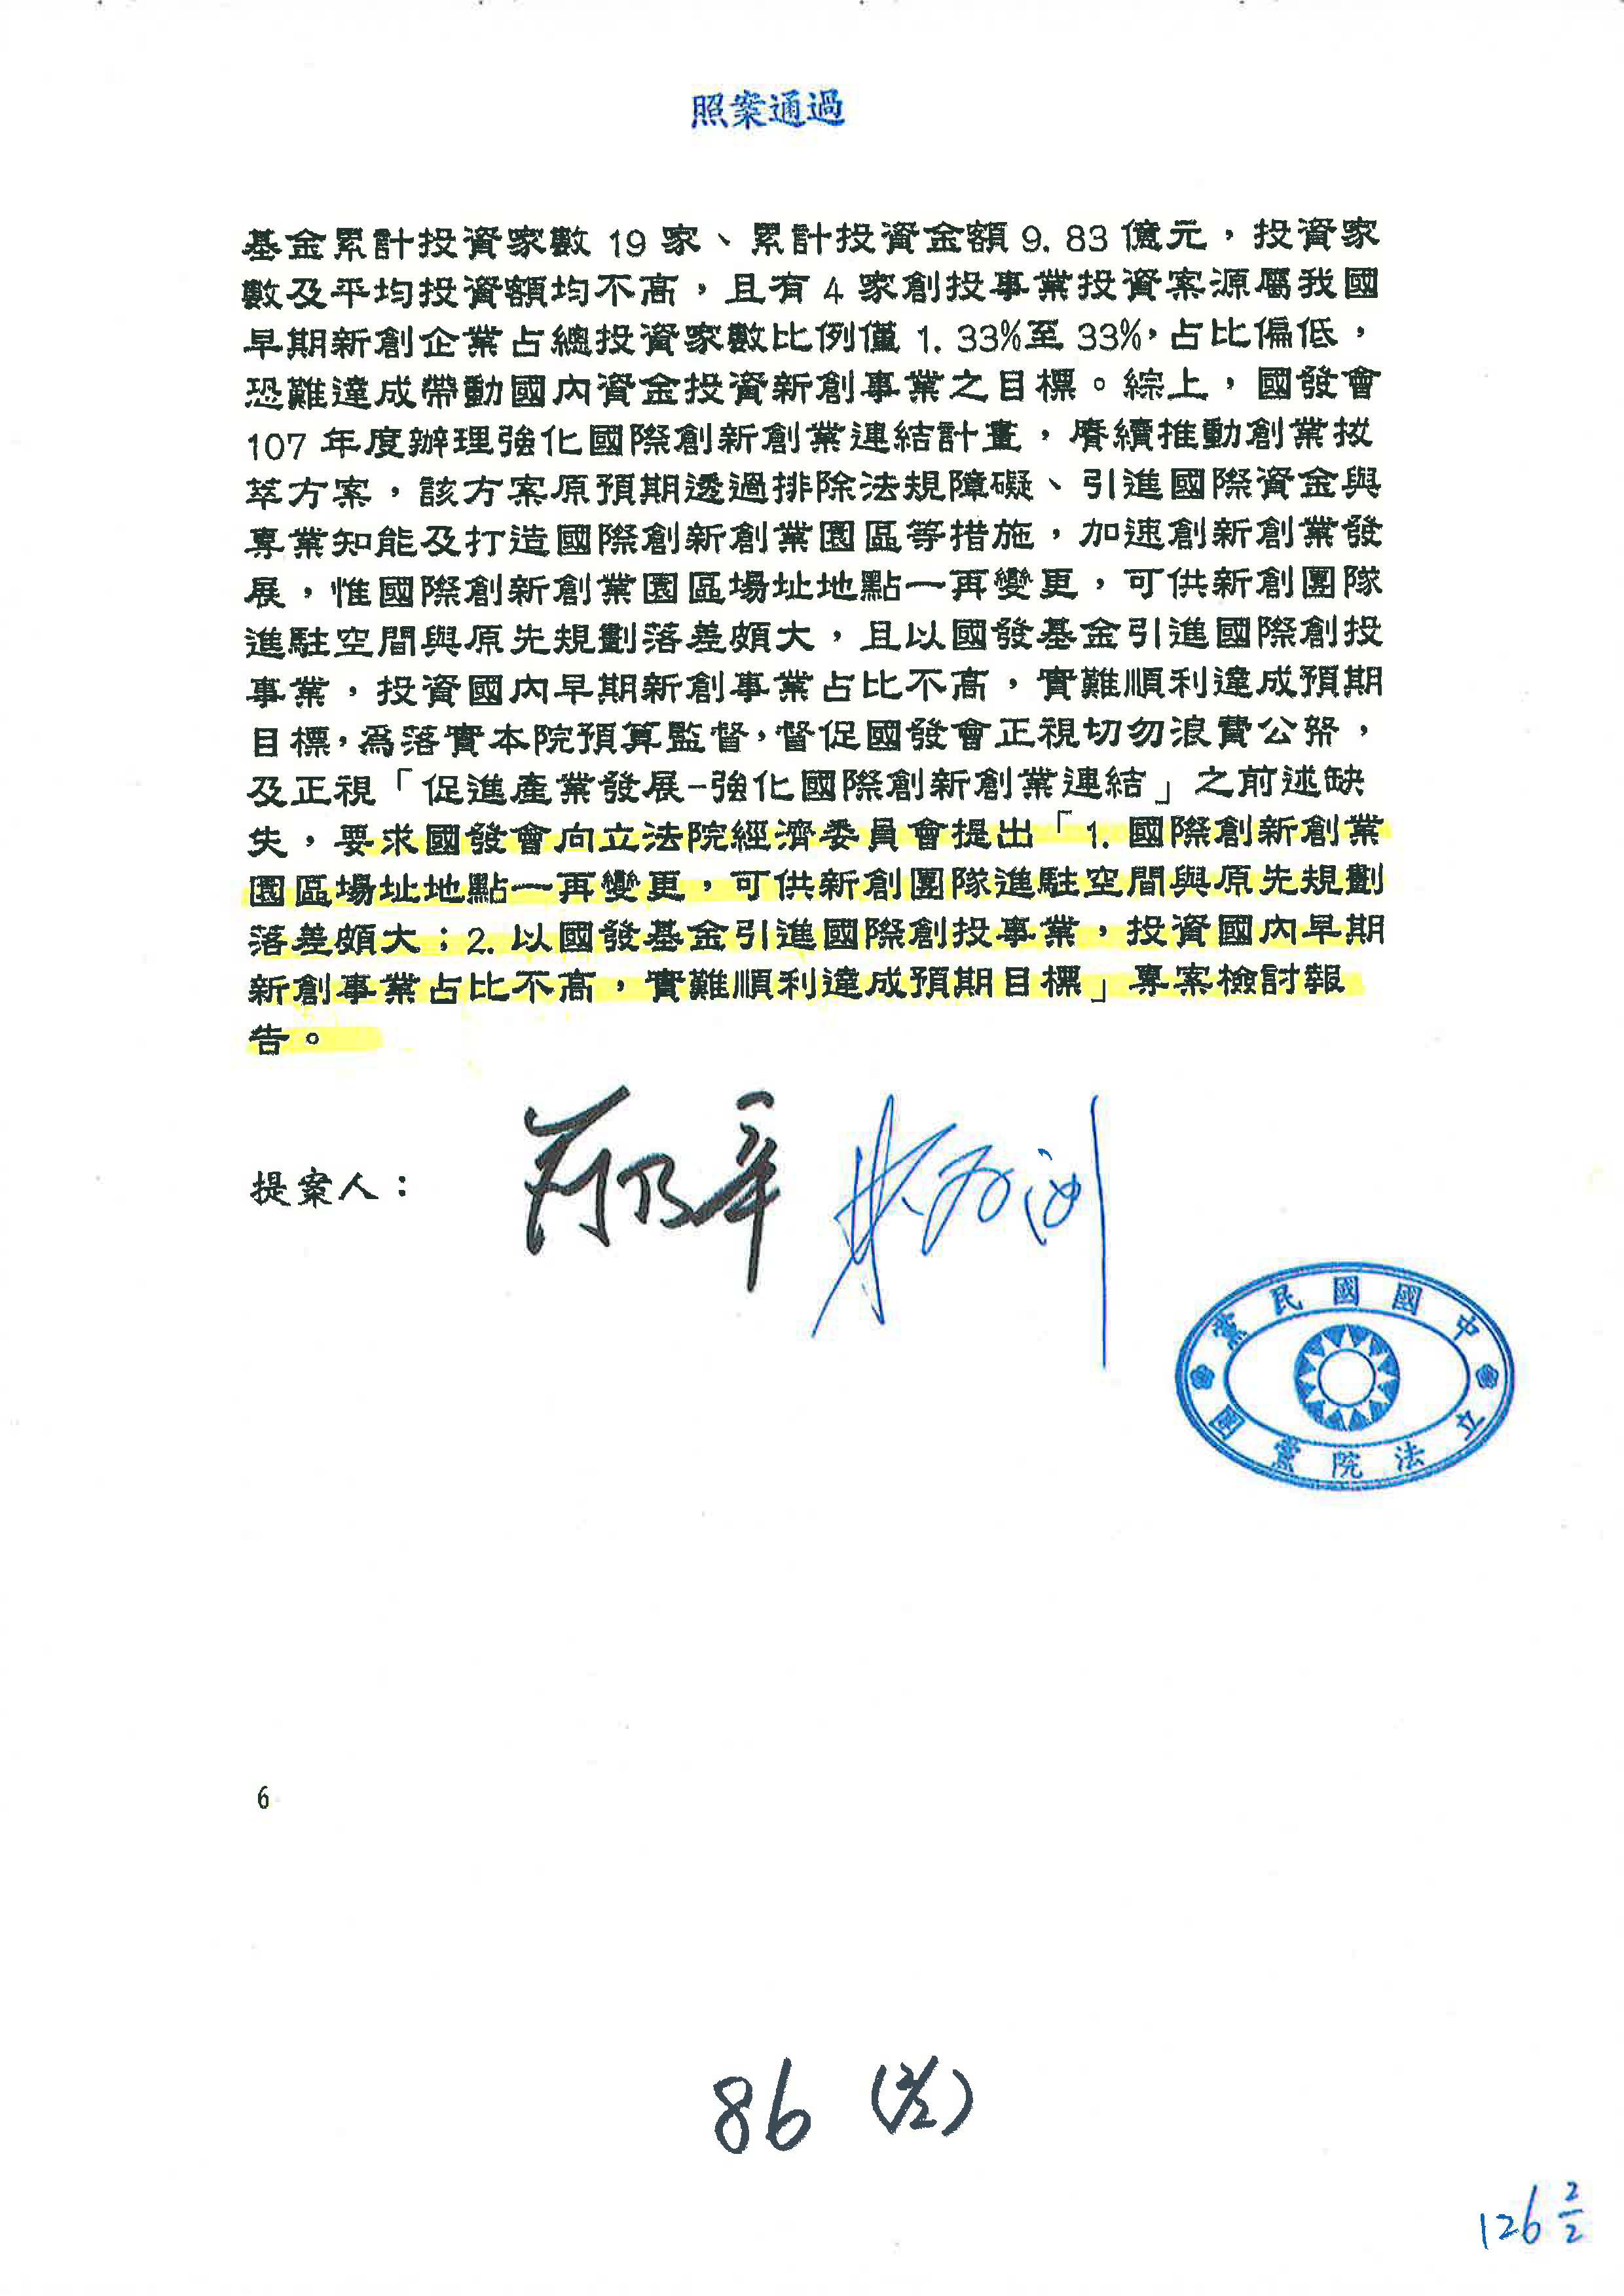 照案通過
基金累計投資家數 19 家、累計投資金額 9.83 億元，投資家
數及平均投資額均不高，且有 4 家創投事業投資案源屬我國
早期新創企業占總投資家數比例僅 1.33%至 33%，占比偏低，
恐難達成帶動國內資金投資新創事業之目標。綜上，國發會
107 年度辦理強化國際創新創業連結計畫，賡續推動創業拔
萃方案，該方案原預期透過排除法規障礙、引進國際資金與
專業知能及打造國際創新創業園區等措施，加速創新創業發
展，惟國際創新創業園區場址地點一再變更，可供新創團隊
進駐空間與原先規劃落差頗大，且以國發基金引進國際創投
事業，投資國內早期新創事業占比不高，實難順利達成預期
目標，為落實本院預算監督，督促國發會正視切勿浪費公帑，
及正視「促進產業發展-強化國際創新創業連結」之前述缺
失，要求國發會向立法院經濟委員會提出「1.國際創新創業
園區場址地點一再變更，可供新創團隊進駐空間與原先規劃
落差頗大；2.以國發基金引進國際創投事業，投資國內早期
新創事業占比不高，實難順利達成預期目標」專案檢討報
告。
提案人：
中國國民黨
立法院黨團
6
86 (2/2)
126 2/2